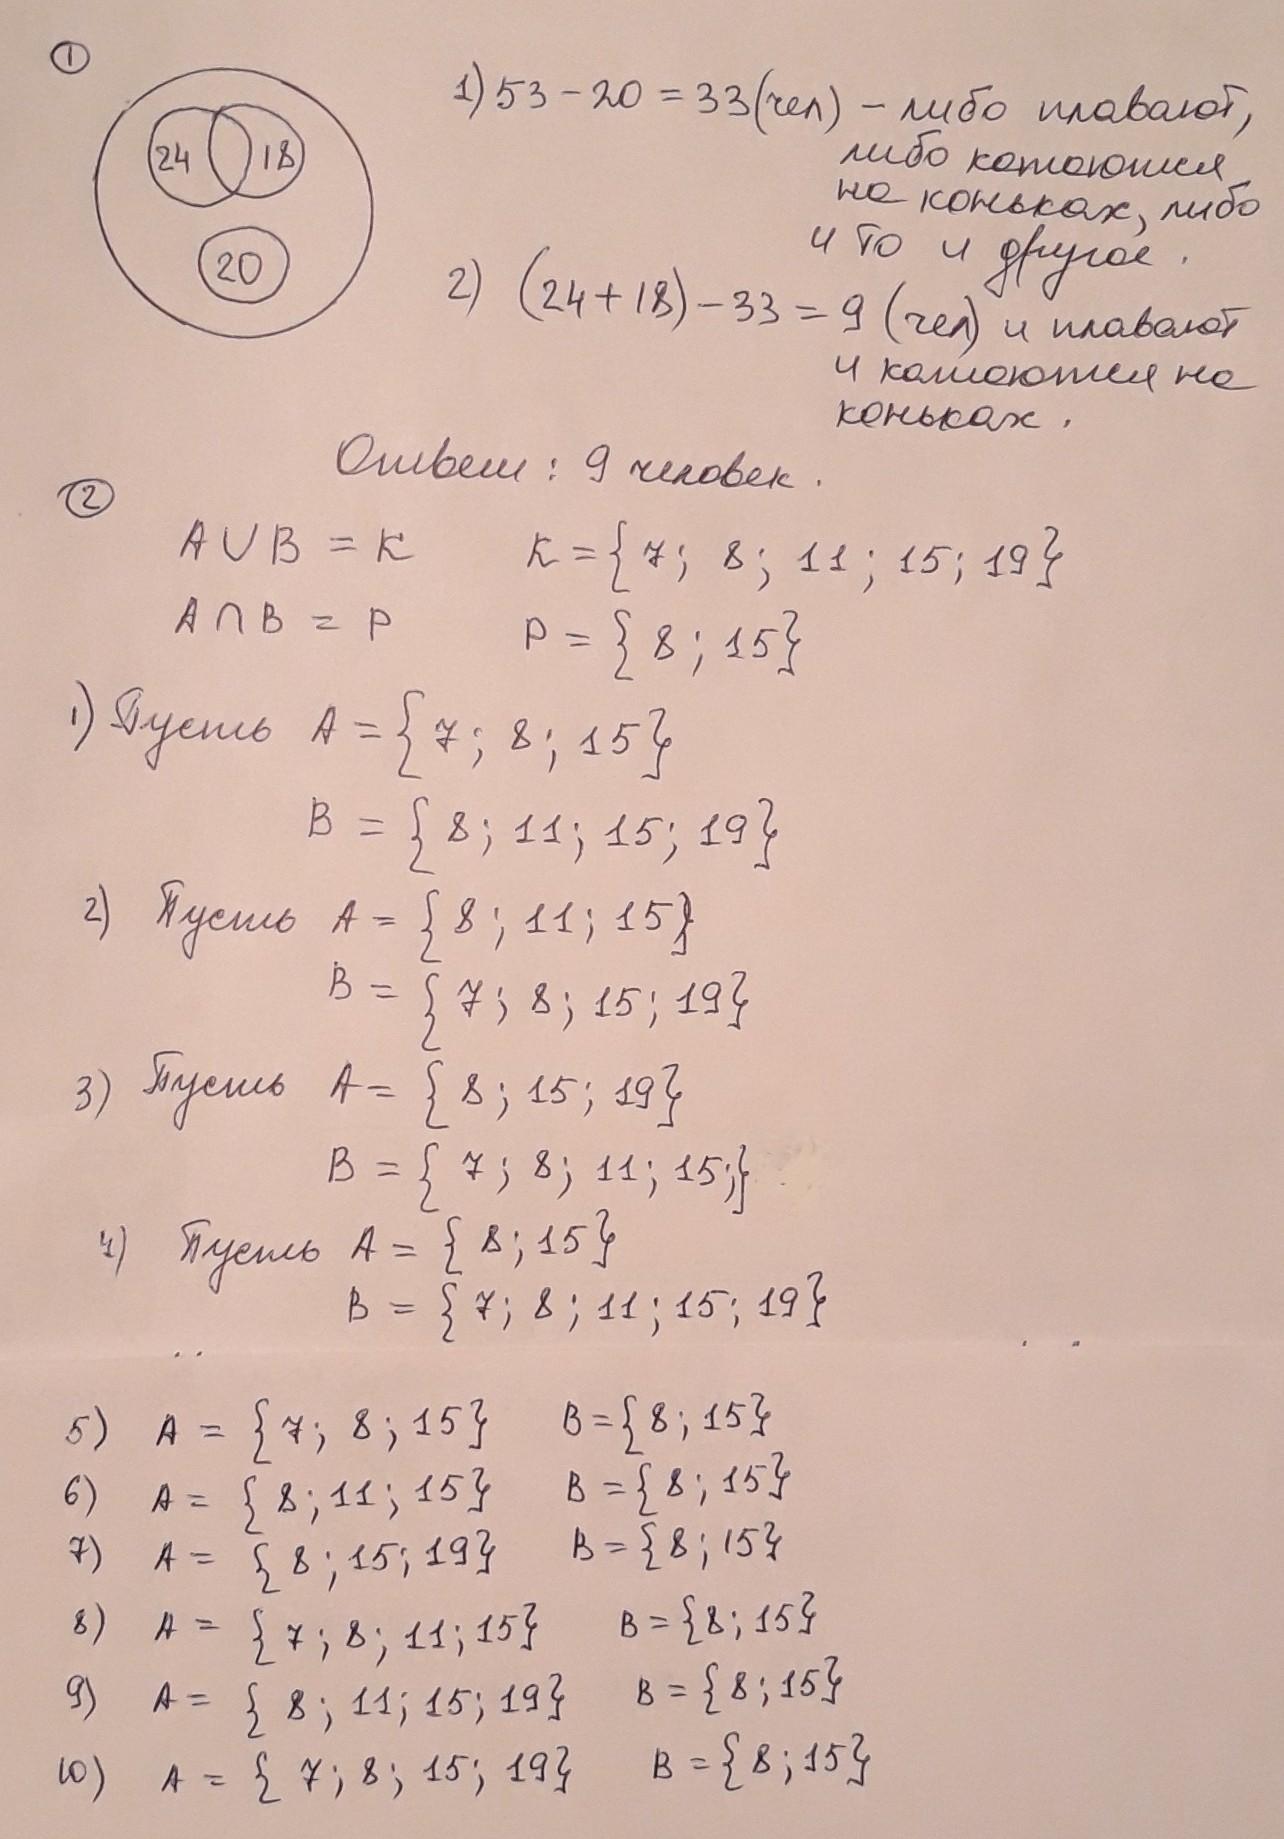 ①
24 18
20
1) 53 - 20 = 33 (чел) - либо плавают,
либо катаются
на коньках, либо
и то и другое.
2) (24 + 18) - 33 = 9 (чел) и плавают
и катаются на
коньках.
Ответ: 9 человек.
②
A ∪ B = K K = {7; 8; 11; 15; 19}
A ∩ B = P P = {8; 15}
1) Пусть A = {7; 8; 15}
B = {8; 11; 15; 19}
2) Пусть A = {8; 11; 15}
B = {7; 8; 15; 19}
3) Пусть A = {8; 15; 19}
B = {7; 8; 11; 15;}
4) Пусть A = {8; 15}
B = {7; 8; 11; 15; 19}
5) A = {7; 8; 15} B = {8; 15}
6) A = {8; 11; 15} B = {8; 15}
7) A = {8; 15; 19} B = {8; 15}
8) A = {7; 8; 11; 15} B = {8; 15}
9) A = {8; 11; 15; 19} B = {8; 15}
10) A = {7; 8; 15; 19} B = {8; 15}